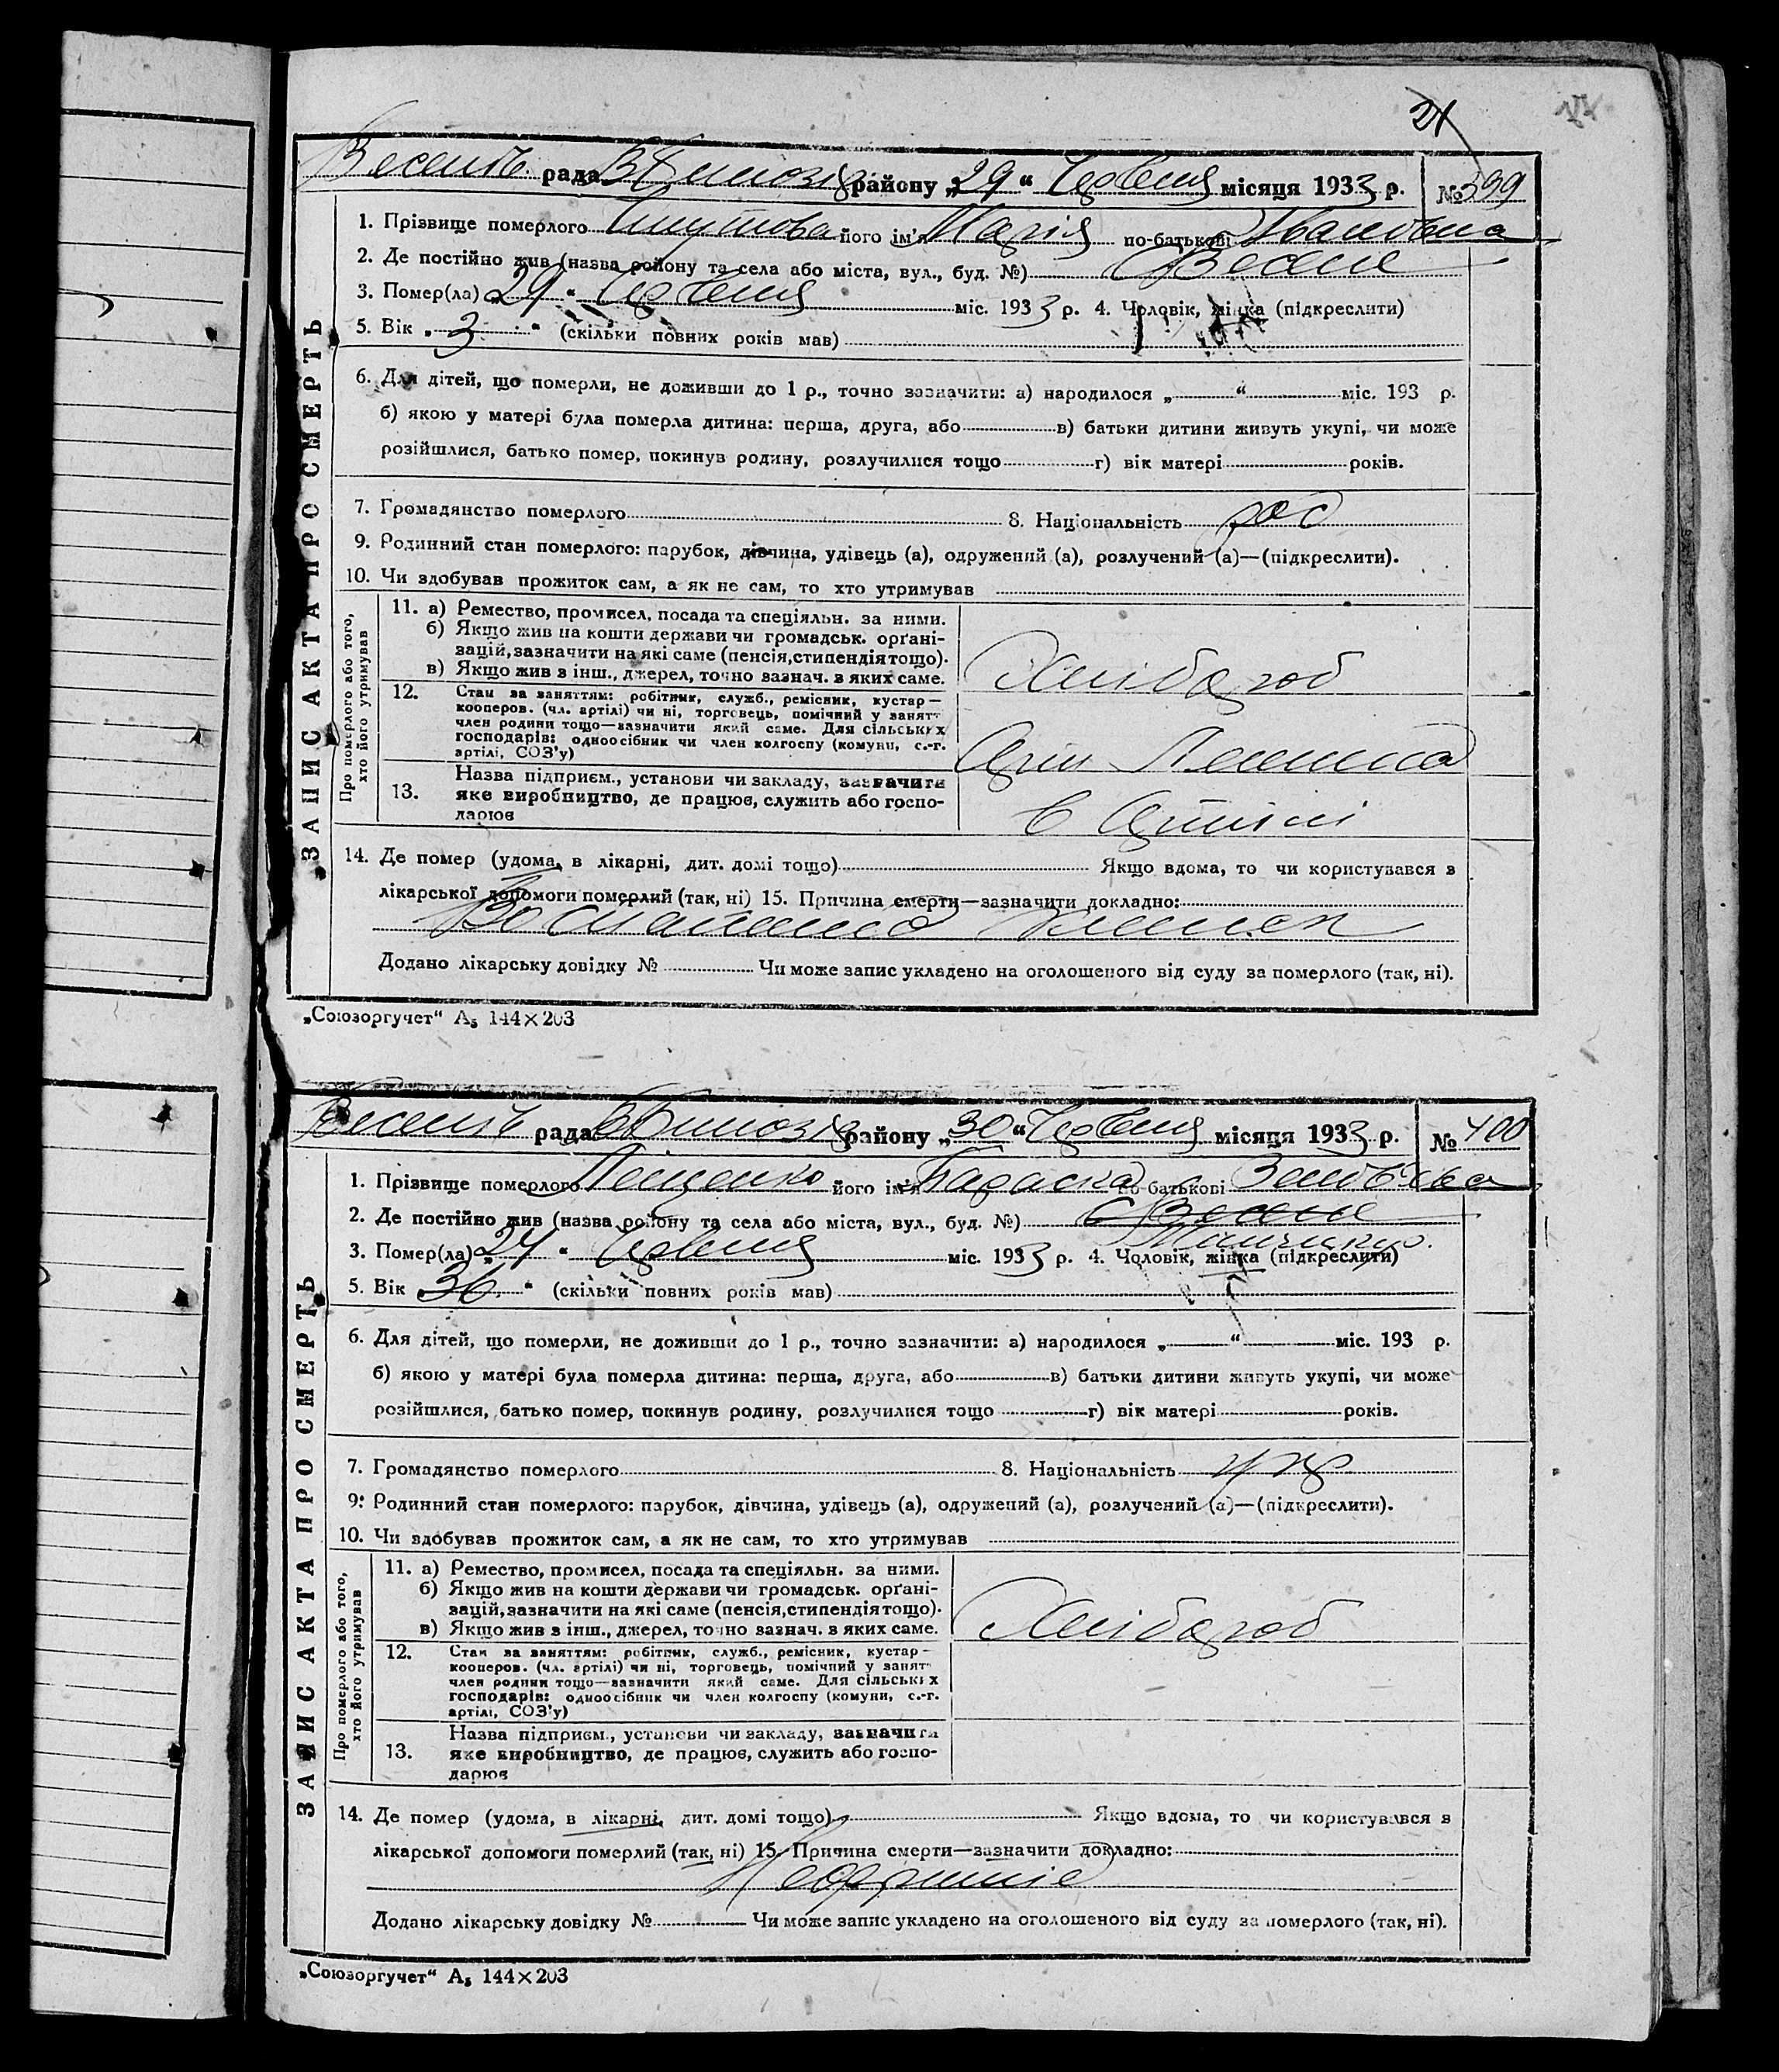 21
рада району „29“ Червня місяця 1933 р. № 399
ЗАПИС АКТА ПРО СМЕРТЬ
1. Прізвище померлого його ім'я Марія по-батькові Іванівна
2. Де постійно жив (назва району та села або міста, вул., буд. №) с Веселе
3. Помер(ла) „29“ Червня міс. 1933 р. 4. Чоловік, жінка (підкреслити)
5. Вік „3“ (скільки повних років мав)
6. Для дітей, що померли, не доживши до 1 р., точно зазначити: а) народилося „ “ міс. 193 р.
б) якою у матері була померла дитина: перша, друга, або в) батьки дитини живуть укупі, чи може
розійшлися, батько помер, покинув родину, розлучилися тощо г) вік матері років.
7. Громадянство померлого 8. Національність рос
9. Родинний стан померлого: парубок, дівчина, удівець (а), одружений (а), розлучений (а)—(підкреслити).
10. Чи здобував прожиток сам, а як не сам, то хто утримував
Про померлого або того,
хто його утримував
11. а) Ремество, промисел, посада та спеціяльн. за ними.
б) Якщо жив на кошти держави чи громадськ. орґані-
зацій, зазначити на які саме (пенсія, стипендія тощо).
в) Якщо жив з інш., джерел, точно зазнач. з яких саме.
Хлібароб
12. Стан за заняттям: робітник, служб., ремісник, кустар—
кооперов. (чл. артілі) чи ні, торговець, помічний у занятт
член родини тощо—зазначити який саме. Для сільських
господарів: одноосібник чи член колгоспу (комуни, с.-г.
артілі, СОЗ'у)
Леніна
13. Назва підприєм., установи чи закладу, зазначити
яке виробництво, де працює, служить або госпо-
дарює
в Артілі
14. Де помер (удома, в лікарні, дит. домі тощо) Якщо вдома, то чи користувався з
лікарської допомоги померлий (так, ні) 15. Причина смерти—зазначити докладно:
Додано лікарську довідку № Чи може запис укладено на оголошеного від суду за померлого (так, ні).
„Союзоргучет“ А₅ 144×203
рада району „30“ Червня місяця 1933 р. № 400
ЗАПИС АКТА ПРО СМЕРТЬ
1. Прізвище померлого Лещенко його ім'я Параска по-батькові
2. Де постійно жив (назва району та села або міста, вул., буд. №) с Веселе
3. Помер(ла) „24“ Червня міс. 1933 р. 4. Чоловік, жінка (підкреслити)
5. Вік „36“ (скільки повних років мав)
6. Для дітей, що померли, не доживши до 1 р., точно зазначити: а) народилося „ “ міс. 193 р.
б) якою у матері була померла дитина: перша, друга, або в) батьки дитини живуть укупі, чи може
розійшлися, батько помер, покинув родину, розлучилися тощо г) вік матері років.
7. Громадянство померлого 8. Національність укр
9. Родинний стан померлого: парубок, дівчина, удівець (а), одружений (а), розлучений (а)—(підкреслити).
10. Чи здобував прожиток сам, а як не сам, то хто утримував
Про померлого або того,
хто його утримував
11. а) Ремество, промисел, посада та спеціяльн. за ними.
б) Якщо жив на кошти держави чи громадськ. орґані-
зацій, зазначити на які саме (пенсія, стипендія тощо).
в) Якщо жив з інш., джерел, точно зазнач. з яких саме.
Хлібароб
12. Стан за заняттям: робітник, служб., ремісник, кустар—
кооперов. (чл. артілі) чи ні, торговець, помічний у занятт
член родини тощо—зазначити який саме. Для сільських
господарів: одноосібник чи член колгоспу (комуни, с.-г.
артілі, СОЗ'у)
13. Назва підприєм., установи чи закладу, зазначити
яке виробництво, де працює, служить або госпо-
дарює
14. Де помер (удома, в лікарні, дит. домі тощо) Якщо вдома, то чи користувався з
лікарської допомоги померлий (так, ні) 15. Причина смерти—зазначити докладно:
Додано лікарську довідку № Чи може запис укладено на оголошеного від суду за померлого (так, ні).
„Союзоргучет“ А₅ 144×203